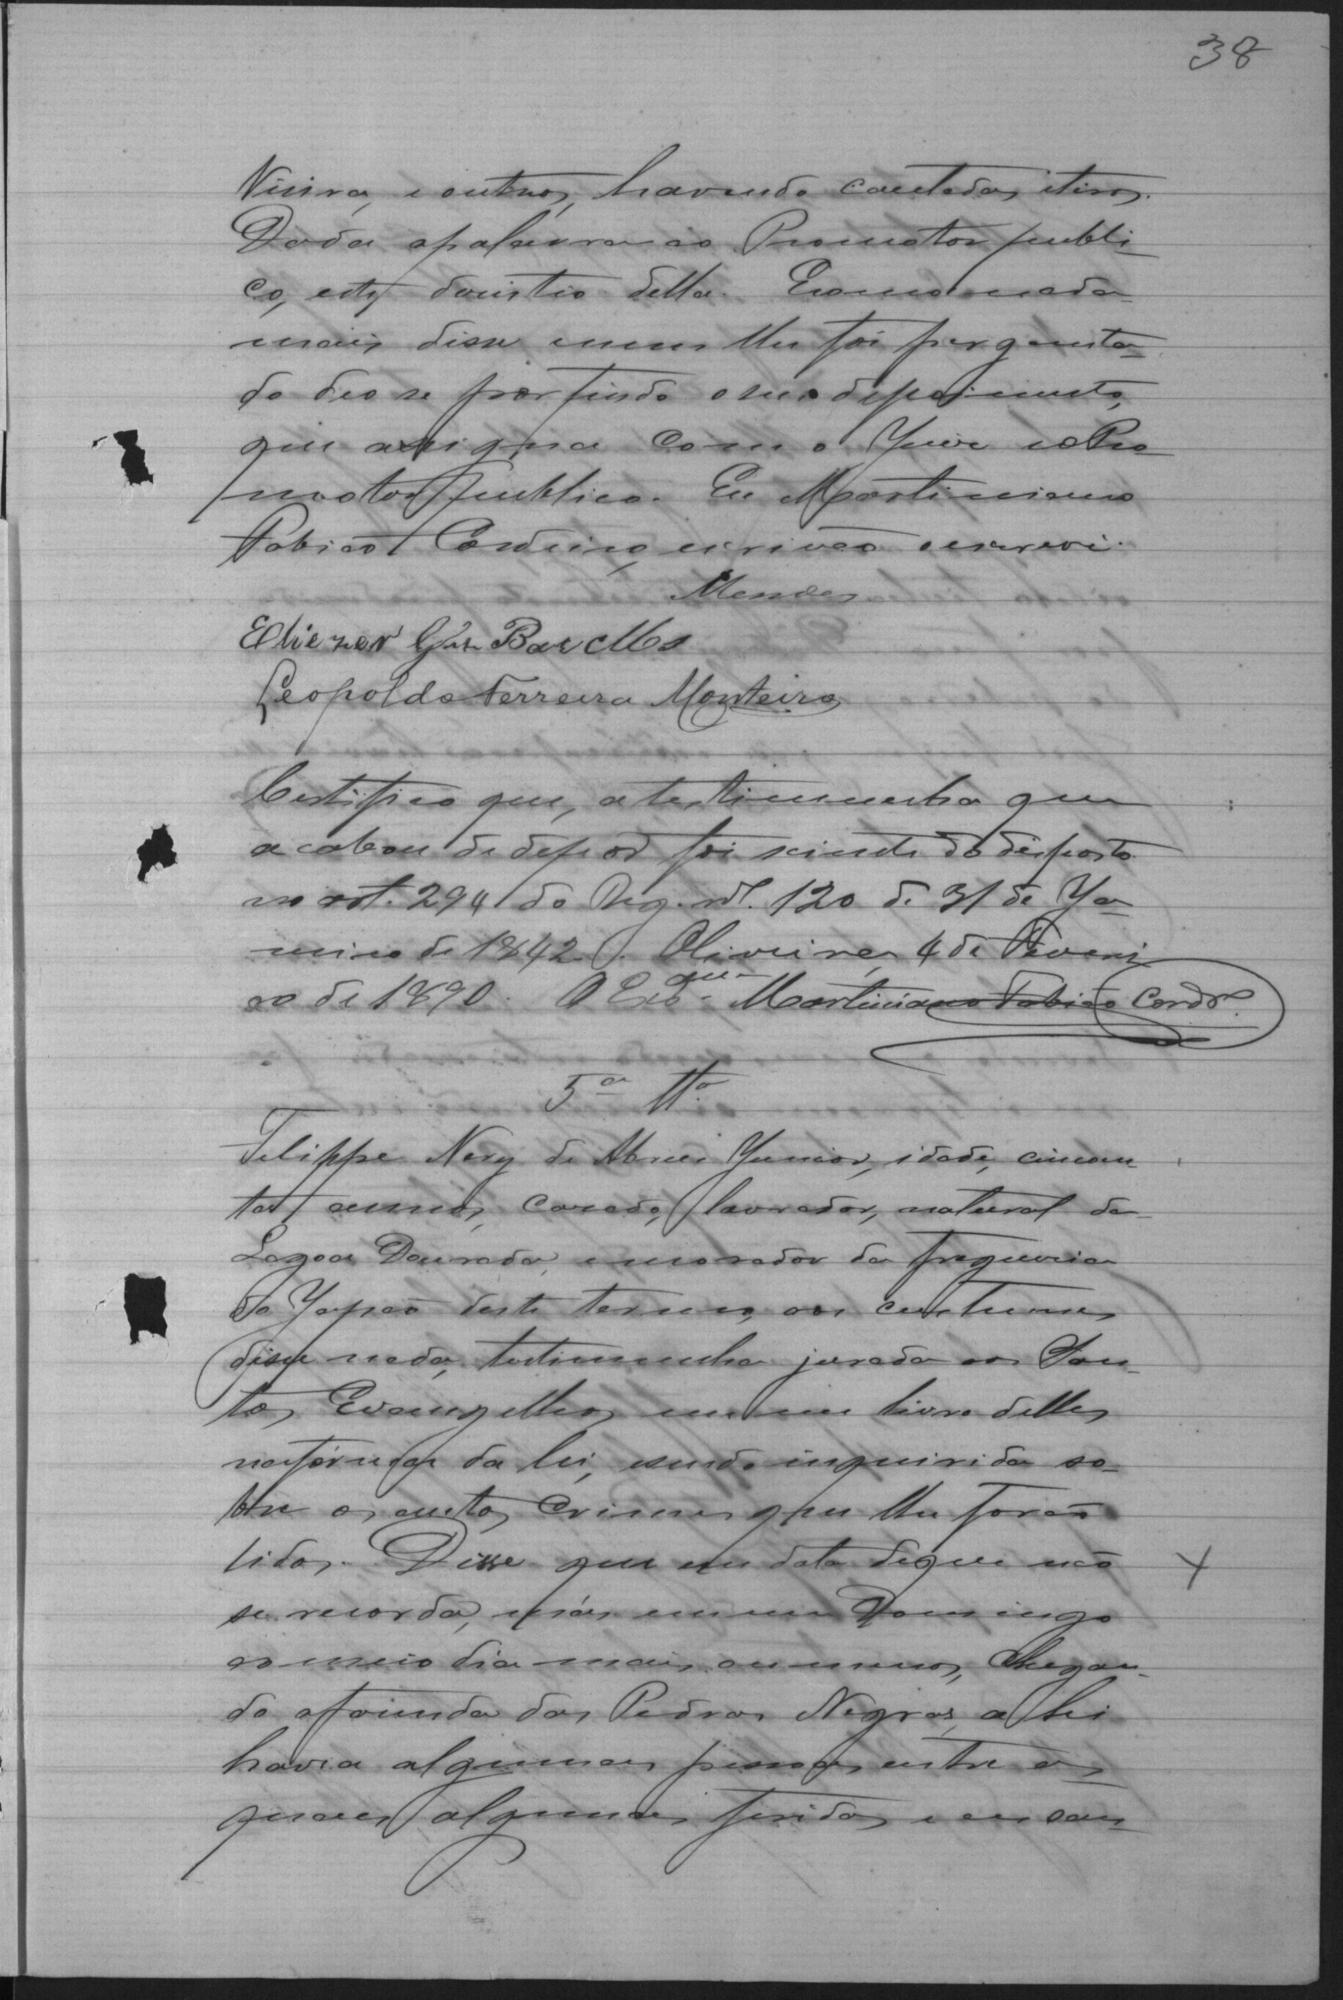 38
Vieira, e outros, havendo cautedas, tiros.
Dada a palavra ao Promotor publi-
co, este desistio della. E como nada
mais disse nem lhe foi pergunta-
do deo se por findo o seu depoimento,
que assigna com o Juiz e o Pro
motor publico. Eu Martiniano
Fabião Cordeiro, escrivão o escrevi.
Mendes
Eliezer Barcellos
Leopoldo Ferreira Monteiro
Certifico que, a testimunha que
acabou de depor foi sciente do disposto
no art. 294 do Reg. nº. 120 de 31 de Ja-
neiro de 1842. Oliveira, 4 de Feverei
ro de 1890. O Escam Martiniano Fabião Cordrº.
5ª Ttª.
Felippe Nery de Abreu Junior, idade, cincoen-
ta annos, casado, lavrador, natural da
Lagoa Dourada, e morador da freguezia
do Japão deste termo, aos custumes
disse nada, testimunha jurada aos San-
tos Evangelhos em um livro delles
na fórma da lei, e sendo inquirida so-
bre os autos crimes que lhe forão
lidos. Disse que em data de que não
se recorda, mas em um Domingo
ao meio dia mais ou menos, chegan-
do a fazenda das Pedras Negras, ahi
havia algumas pessoas entre as
quaes algumas feridas e ensan-